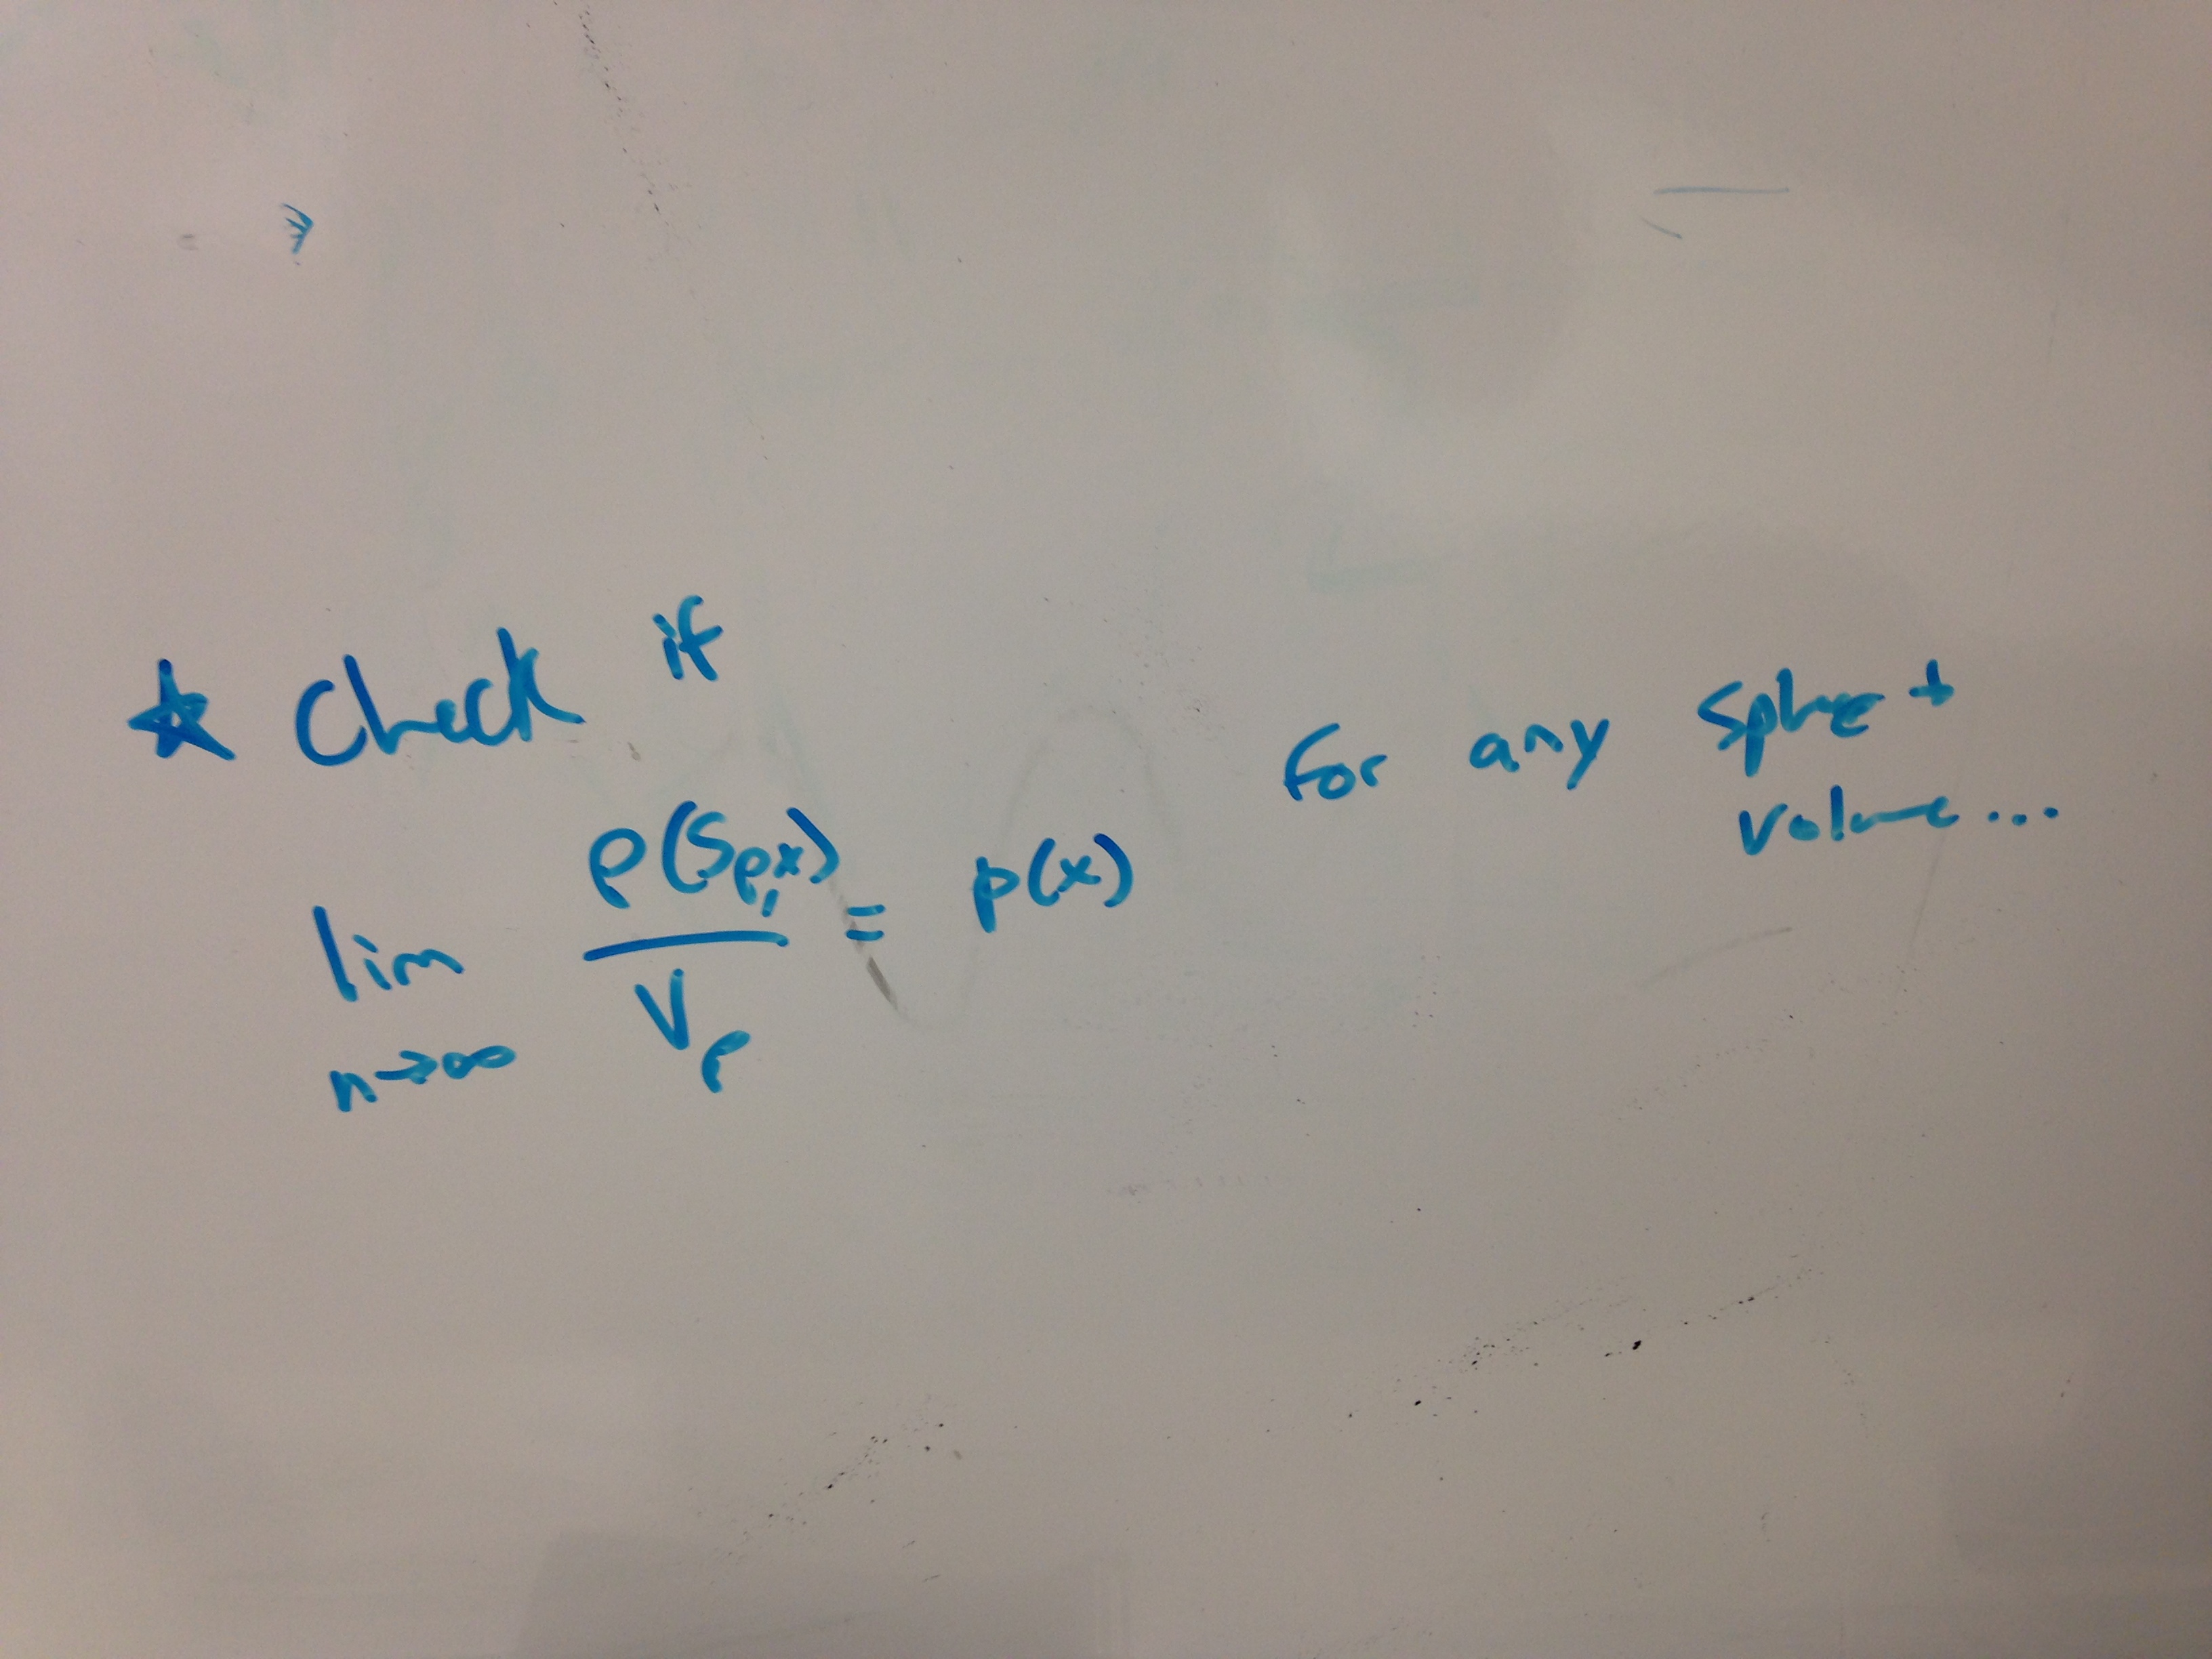 ☆ Check if
lim n→∞ ρ(S_ρ,x) / V_ρ = p(x)
For any sphere +
volume...